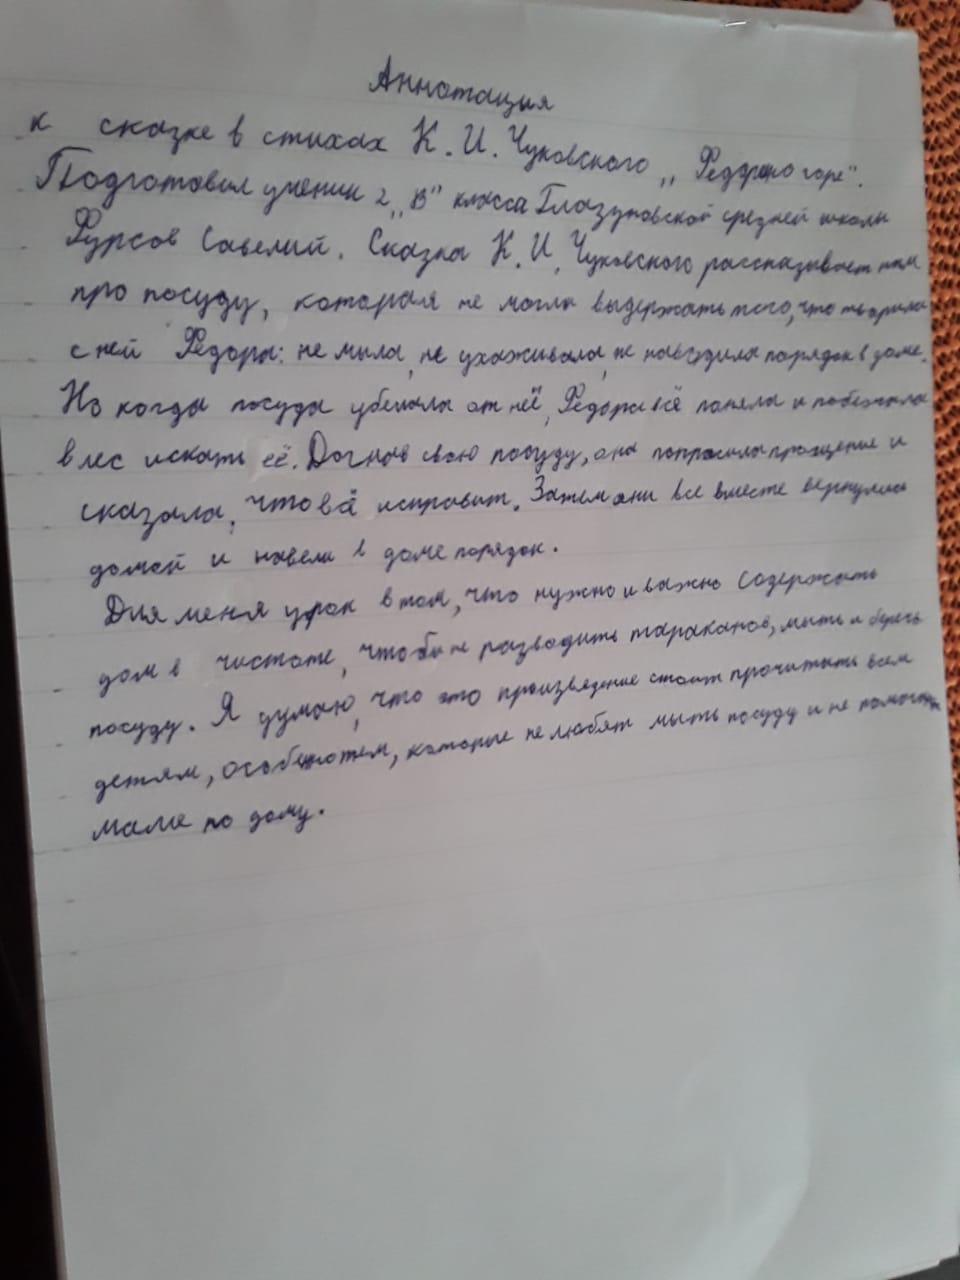 Аннотация
к сказке в стихах К. И. Чуковского „Федорино горе".
Подготовил ученик 2 „В" класса Глазуновской средней школы
Фурсов Савелий. Сказка К. И. Чуковского рассказывает нам
про посуду, которая не могла выдержать того, что творила
с ней Федора: не мыла, не ухаживала, не наводила порядок в доме.
Но когда посуда убежала от неё, Федора всё поняла и побежала
в лес искать её. Догнав свою посуду, она попросила прощение и
сказала, что всё исправит. Затем они все вместе вернулись
домой и навели в доме порядок.
Для меня урок в том, что нужно и важно содержать
дом в чистоте, чтобы не разводить тараканов, мыть и беречь
посуду. Я думаю, что это произведение стоит прочитать всем
детям, особенно тем, которые не любят мыть посуду и не помогают
маме по дому.